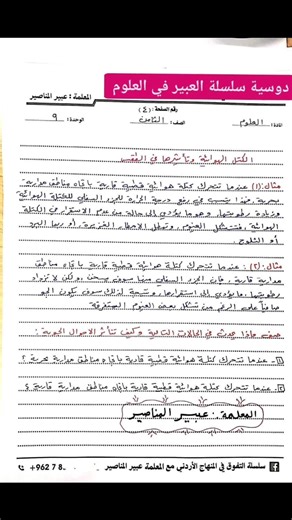 دوسية سلسلة العبير في العلوم
المعلمة : عبير المناصير
رقم الصفحة : (٤)
المادة : العلوم
الصف : الثامن
الوحدة : ٩
الكتل الهوائية وتأثيرها في الطقس
مثال (١) : عندما تتحرك كتلة هوائية قطبية قارية باتجاه مناطق مدارية
بحرية، فهذا يتسبب في رفع درجة الحرارة للجزء السفلي للكتلة الهوائية
وزيادة رطوبتها، وهو ما يؤدي إلى حالة من عدم الاستقرار في الكتلة
الهوائية فتتشكل الغيوم وتهطل الأمطار الغزيرة أو ربما البرد
أو الثلوج
مثال (٢) : عندما تتحرك كتلة هوائية قطبية قارية باتجاه مناطق
مدارية قارية، فإن الجزء السفلي منها سوف يسخن، ولكن لا تزداد
رطوبتها، ما يؤدي إلى استقرارها، ونتيجة لذلك سوف يكون الجو
صافياً على الرغم من تشكل بعض الغيوم المتفرقة
صف ماذا يحدث في الحالات التالية وكيف تتأثر الأحوال الجوية :
١- عندما تتحرك كتلة هوائية قطبية قارية باتجاه مناطق مدارية بحرية ؟
٢- عندما تتحرك كتلة هوائية قطبية قارية باتجاه مناطق مدارية قارية ؟
المعلمة : عبير المناصير
سلسلة التفوق في المنهاج الأردني مع المعلمة عبير المناصير
+962 7 8